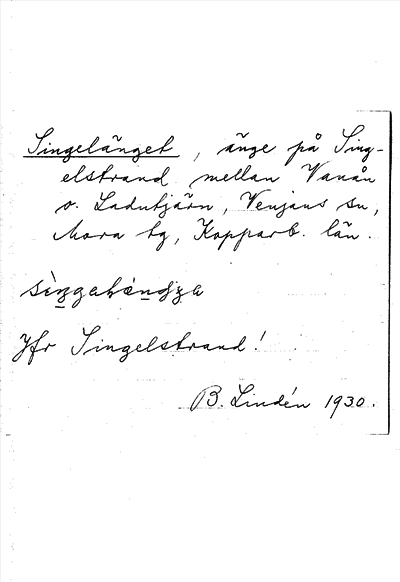 Singelänget, änge på Sing-
elstrand mellan Vanån
o. Ladutjärn, Venjans sn,
Mora tg, Kopparb. län.
Jfr Singelstrand!
B. Lindén 1930.